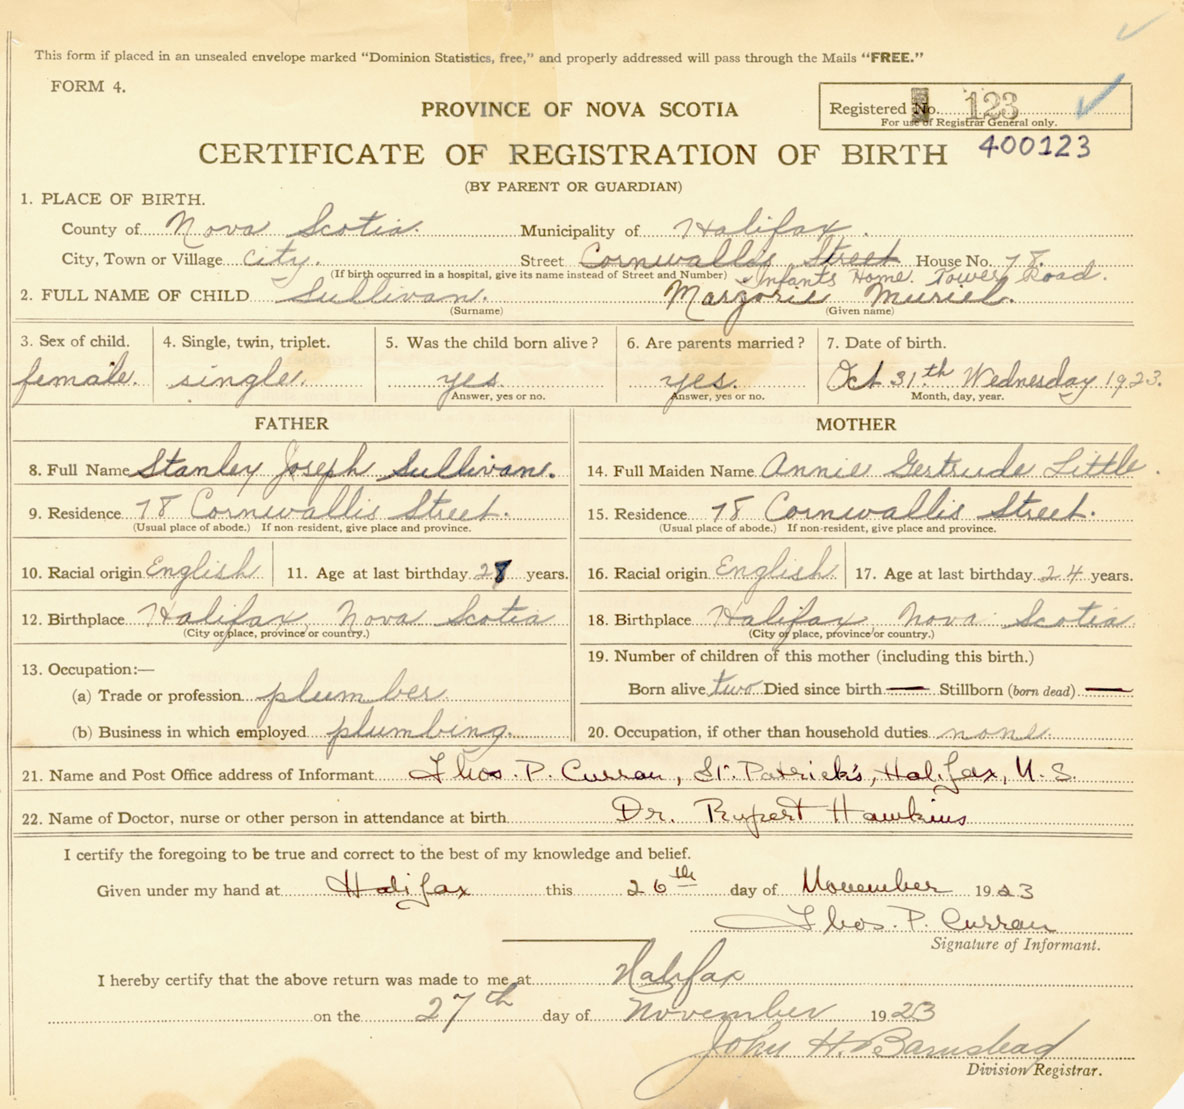 This form if placed in an unsealed envelope marked “Dominion Statistics, free,” and properly addressed will pass through the Mails “FREE.”
FORM 4.
PROVINCE OF NOVA SCOTIA
Registered No. 123
For use of Registrar General only.
CERTIFICATE OF REGISTRATION OF BIRTH
400123
(BY PARENT OR GUARDIAN)
1. PLACE OF BIRTH.
County of Nova Scotia. Municipality of Halifax.
City, Town or Village city. Street Cornwallis Street House No. 78.
(If birth occurred in a hospital, give its name instead of Street and Number) Infants Home. Tower Road.
2. FULL NAME OF CHILD Sullivan. Marjorie Muriel.
(Surname) (Given name)
3. Sex of child. 4. Single, twin, triplet. 5. Was the child born alive? 6. Are parents married? 7. Date of birth.
female. single. yes. yes. Oct 31th Wednesday 1923.
Answer, yes or no. Answer, yes or no. Month, day, year.
FATHER MOTHER
8. Full Name Stanley Joseph Sullivan. 14. Full Maiden Name Annie Gertrude Little.
9. Residence 78 Cornwallis Street. 15. Residence 78 Cornwallis Street.
(Usual place of abode.) If non resident, give place and province. (Usual place of abode.) If non-resident, give place and province.
10. Racial origin English 11. Age at last birthday 27 years. 16. Racial origin English. 17. Age at last birthday 24 years.
12. Birthplace Halifax, Nova Scotia 18. Birthplace Halifax, Nova Scotia.
(City or place, province or country.) (City or place, province or country.)
13. Occupation:— 19. Number of children of this mother (including this birth.)
(a) Trade or profession plumber. Born alive two Died since birth — Stillborn (born dead) —
(b) Business in which employed plumbing. 20. Occupation, if other than household duties none.
21. Name and Post Office address of Informant Thos. P. Curran, St. Patrick's, Halifax, N. S.
22. Name of Doctor, nurse or other person in attendance at birth Dr. Rupert Hawkins
I certify the foregoing to be true and correct to the best of my knowledge and belief.
Given under my hand at Halifax this 26th day of November 1923
Thos. P. Curran
Signature of Informant.
I hereby certify that the above return was made to me at Halifax
on the 27th day of November 1923
John H. Barnstead
Division Registrar.